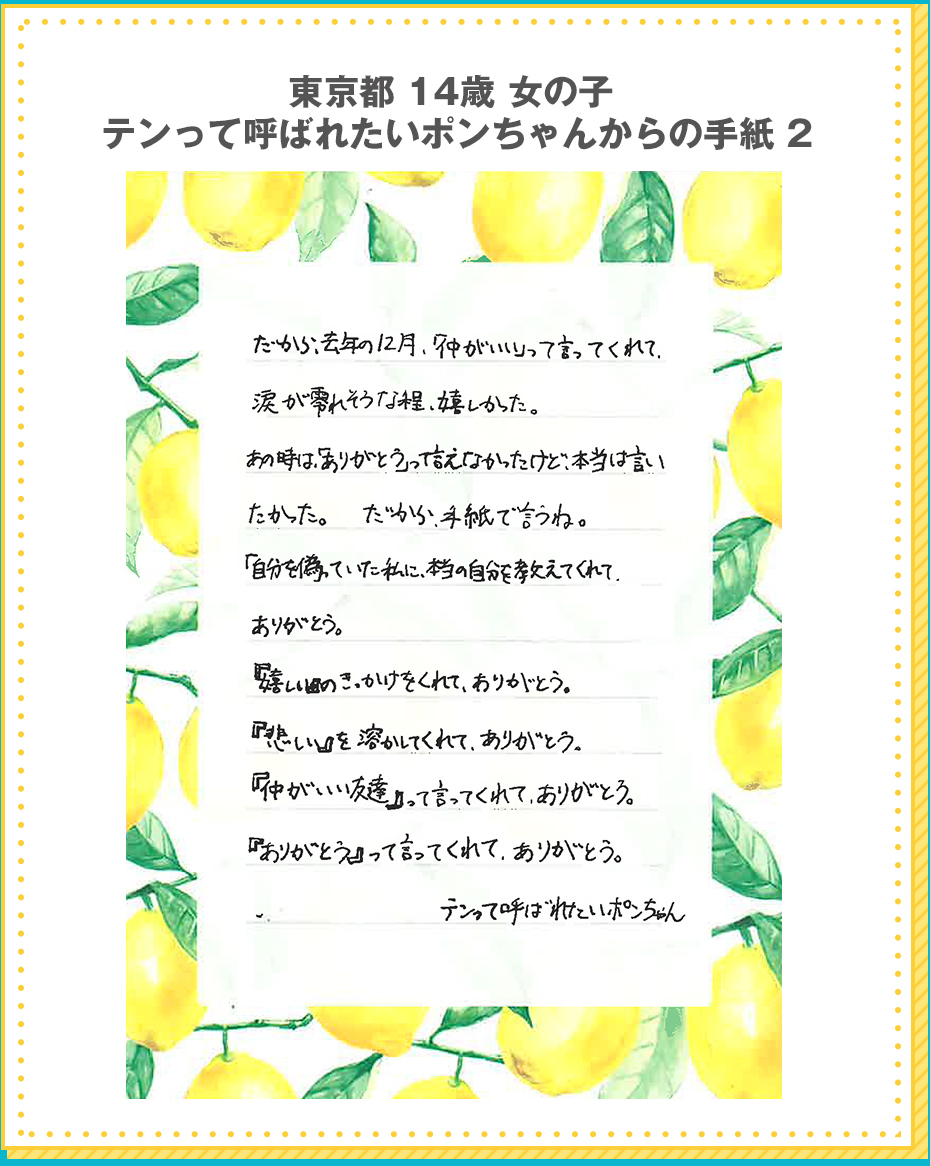 東京都 14歳 女の子
テンって呼ばれたいポンちゃんからの手紙 2
だから、去年の12月、「仲がいい」って言ってくれて、
涙が零れそうな程、嬉しかった。
あの時は、「ありがとう」って言えなかったけど、本当は言い
たかった。 だから、手紙で言うね。
「自分を偽っていた私に、本当の自分を教えてくれて、
ありがとう。
『嬉しい』のきっかけをくれて、ありがとう。
『悲しい』を溶かしてくれて、ありがとう。
『仲がいい友達』って言ってくれて、ありがとう。
『ありがとう』って言ってくれて、ありがとう。
テンって呼ばれたいポンちゃん